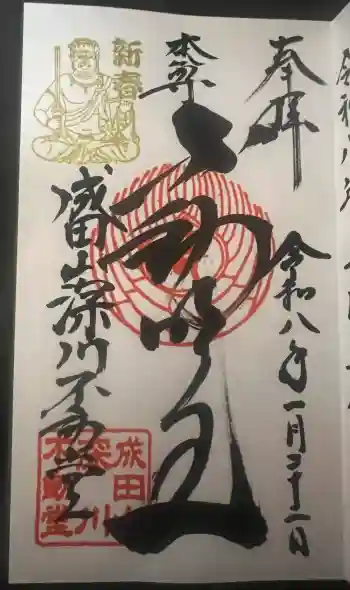 奉拝
令和八年一月二十二日
本尊
不動明王
新春
成田山深川不動堂
成田山
深川
不動堂